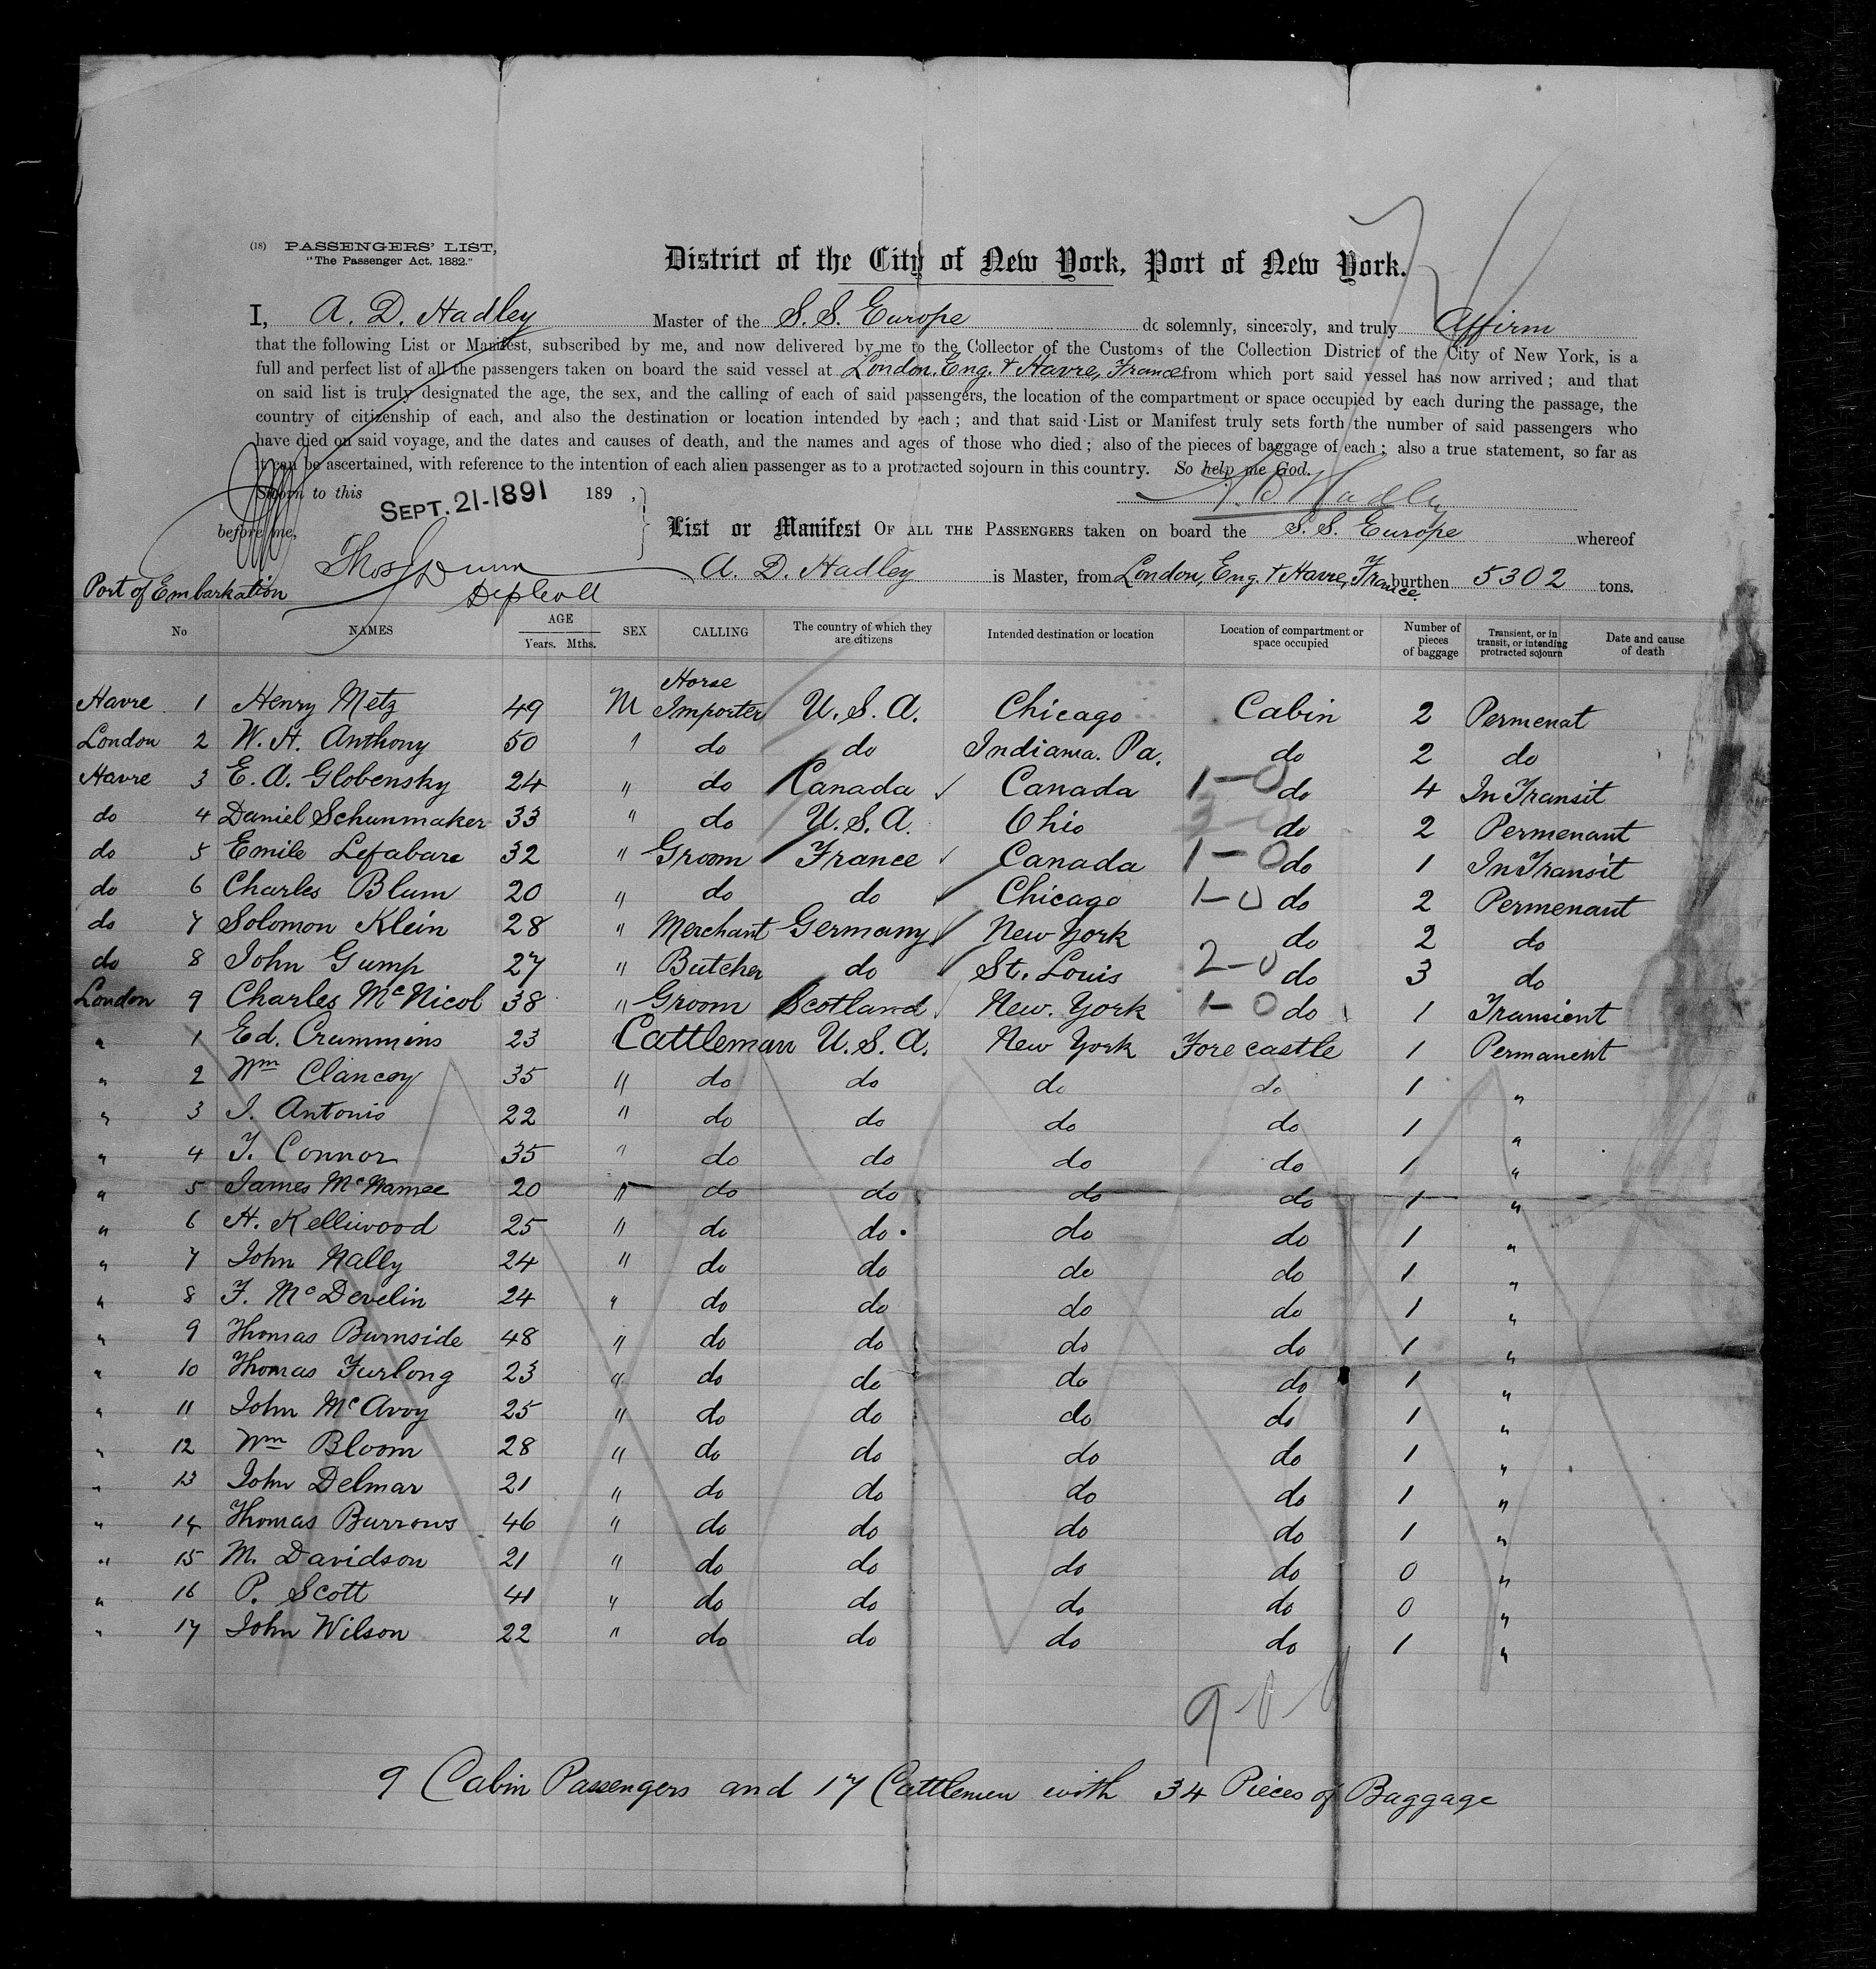 (18) PASSENGERS' LIST,
"The Passenger Act, 1882."
District of the City of New York, Port of New York.
I, A. D. Hadley Master of the S. S. Europe do solemnly, sincerely, and truly Affirm
that the following List or Manifest, subscribed by me, and now delivered by me to the Collector of the Customs of the Collection District of the City of New York, is a
full and perfect list of all the passengers taken on board the said vessel at London, Eng. & Havre, France from which port said vessel has now arrived; and that
on said list is truly designated the age, the sex, and the calling of each of said passengers, the location of the compartment or space occupied by each during the passage, the
country of citizenship of each, and also the destination or location intended by each; and that said List or Manifest truly sets forth the number of said passengers who
have died on said voyage, and the dates and causes of death, and the names and ages of those who died; also of the pieces of baggage of each; also a true statement, so far as
it can be ascertained, with reference to the intention of each alien passenger as to a protracted sojourn in this country. So help me God.
Sworn to this SEPT. 21-1891 189 ,
A. D. Hadley
before me,
List or Manifest OF ALL THE PASSENGERS taken on board the S. S. Europe whereof
Thos J Dunn
Dep Coll
A. D. Hadley is Master, from London, Eng. & Havre, France. burthen 5302 tons.
Port of Embarkation
No NAMES AGE Years. Mths. SEX CALLING The country of which they are citizens Intended destination or location Location of compartment or space occupied Number of pieces of baggage Transient, or in transit, or intending protracted sojourn Date and cause of death
Havre 1 Henry Metz 49 M Horse Importer U. S. A. Chicago Cabin 2 Permenat
London 2 W. H. Anthony 50 " do do Indiana. Pa. do 2 do
Havre 3 E. A. Globensky 24 " do Canada Canada 1-0 do 4 In Transit
do 4 Daniel Schunmaker 33 " do U. S. A. Ohio do 2 Permenant
do 5 Emile Lefabare 32 " Groom France Canada 1-0 do 1 In Transit
do 6 Charles Blum 20 " do do Chicago 1-0 do 2 Permenant
do 7 Solomon Klein 28 " Merchant Germany New York do 2 do
do 8 John Gump 27 " Butcher do St. Louis 2-0 do 3 do
London 9 Charles McNicol 38 " Groom Scotland New. York 1-0 do 1 Transient
" 1 Ed. Crummins 23 Cattleman U. S. A. New York Forecastle 1 Permanent
" 2 Wm Clancey 35 " do do do do 1 "
" 3 J. Antonio 22 " do do do do 1 "
" 4 T. Connor 35 " do do do do 1 "
" 5 James McNamee 20 " do do do do 1 "
" 6 H. Kelliwood 25 " do do do do 1 "
" 7 John Nally 24 " do do do do 1 "
" 8 F. McDevelin 24 " do do do do 1 "
" 9 Thomas Burnside 48 " do do do do 1 "
" 10 Thomas Furlong 23 " do do do do 1 "
" 11 John McAvoy 25 " do do do do 1 "
" 12 Wm Bloom 28 " do do do do 1 "
" 13 John Delmar 21 " do do do do 1 "
" 14 Thomas Burrows 46 " do do do do 1 "
" 15 M. Davidson 21 " do do do do 0 "
" 16 P. Scott 41 " do do do do 0 "
" 17 John Wilson 22 " do do do do 1 "
9 Cabin Passengers and 17 Cattlemen with 34 Pieces of Baggage